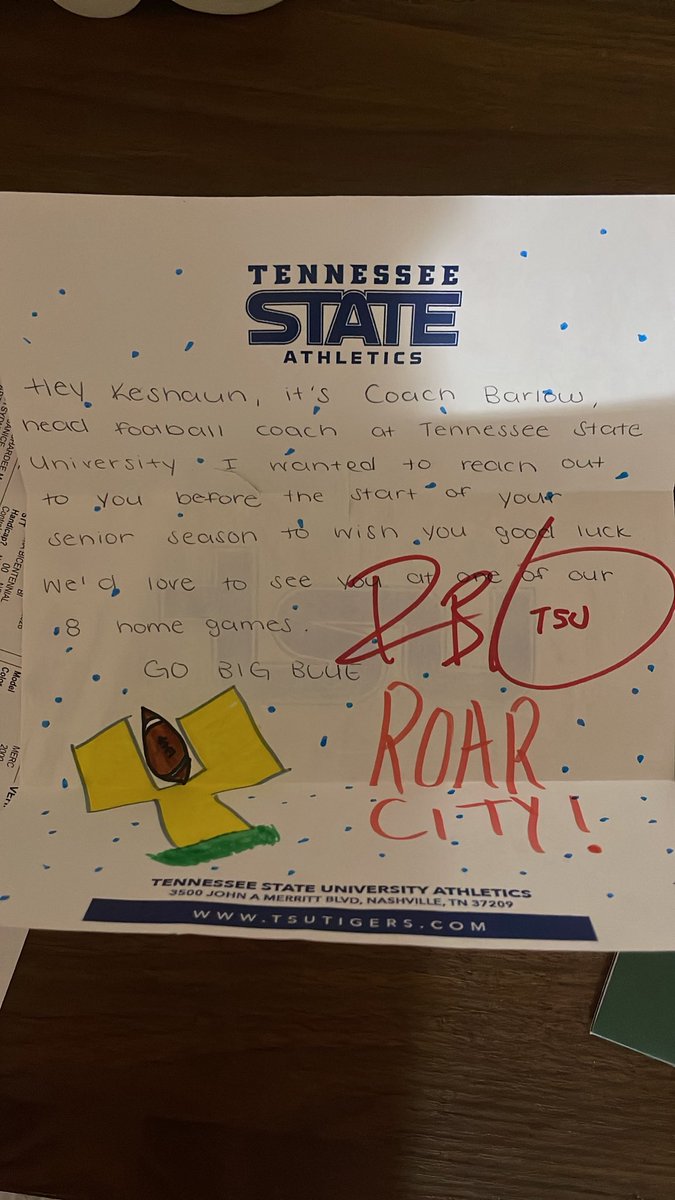 TENNESSEE
STATE
ATHLETICS
Hey Keshaun, it's Coach Barlow,
head football coach at Tennessee State
University. I wanted to reach out
to you before the start of your
senior season to wish you good luck
We'd love to see you at one of our
8 home games.
GO BIG BLUE
TSU
ROAR
CITY!
TENNESSEE STATE UNIVERSITY ATHLETICS
3500 JOHN A MERRITT BLVD, NASHVILLE, TN 37209
WWW.TSUTIGERS.COM
BICENTENNIAL
Handicap?
Model
Color
MERC
2000